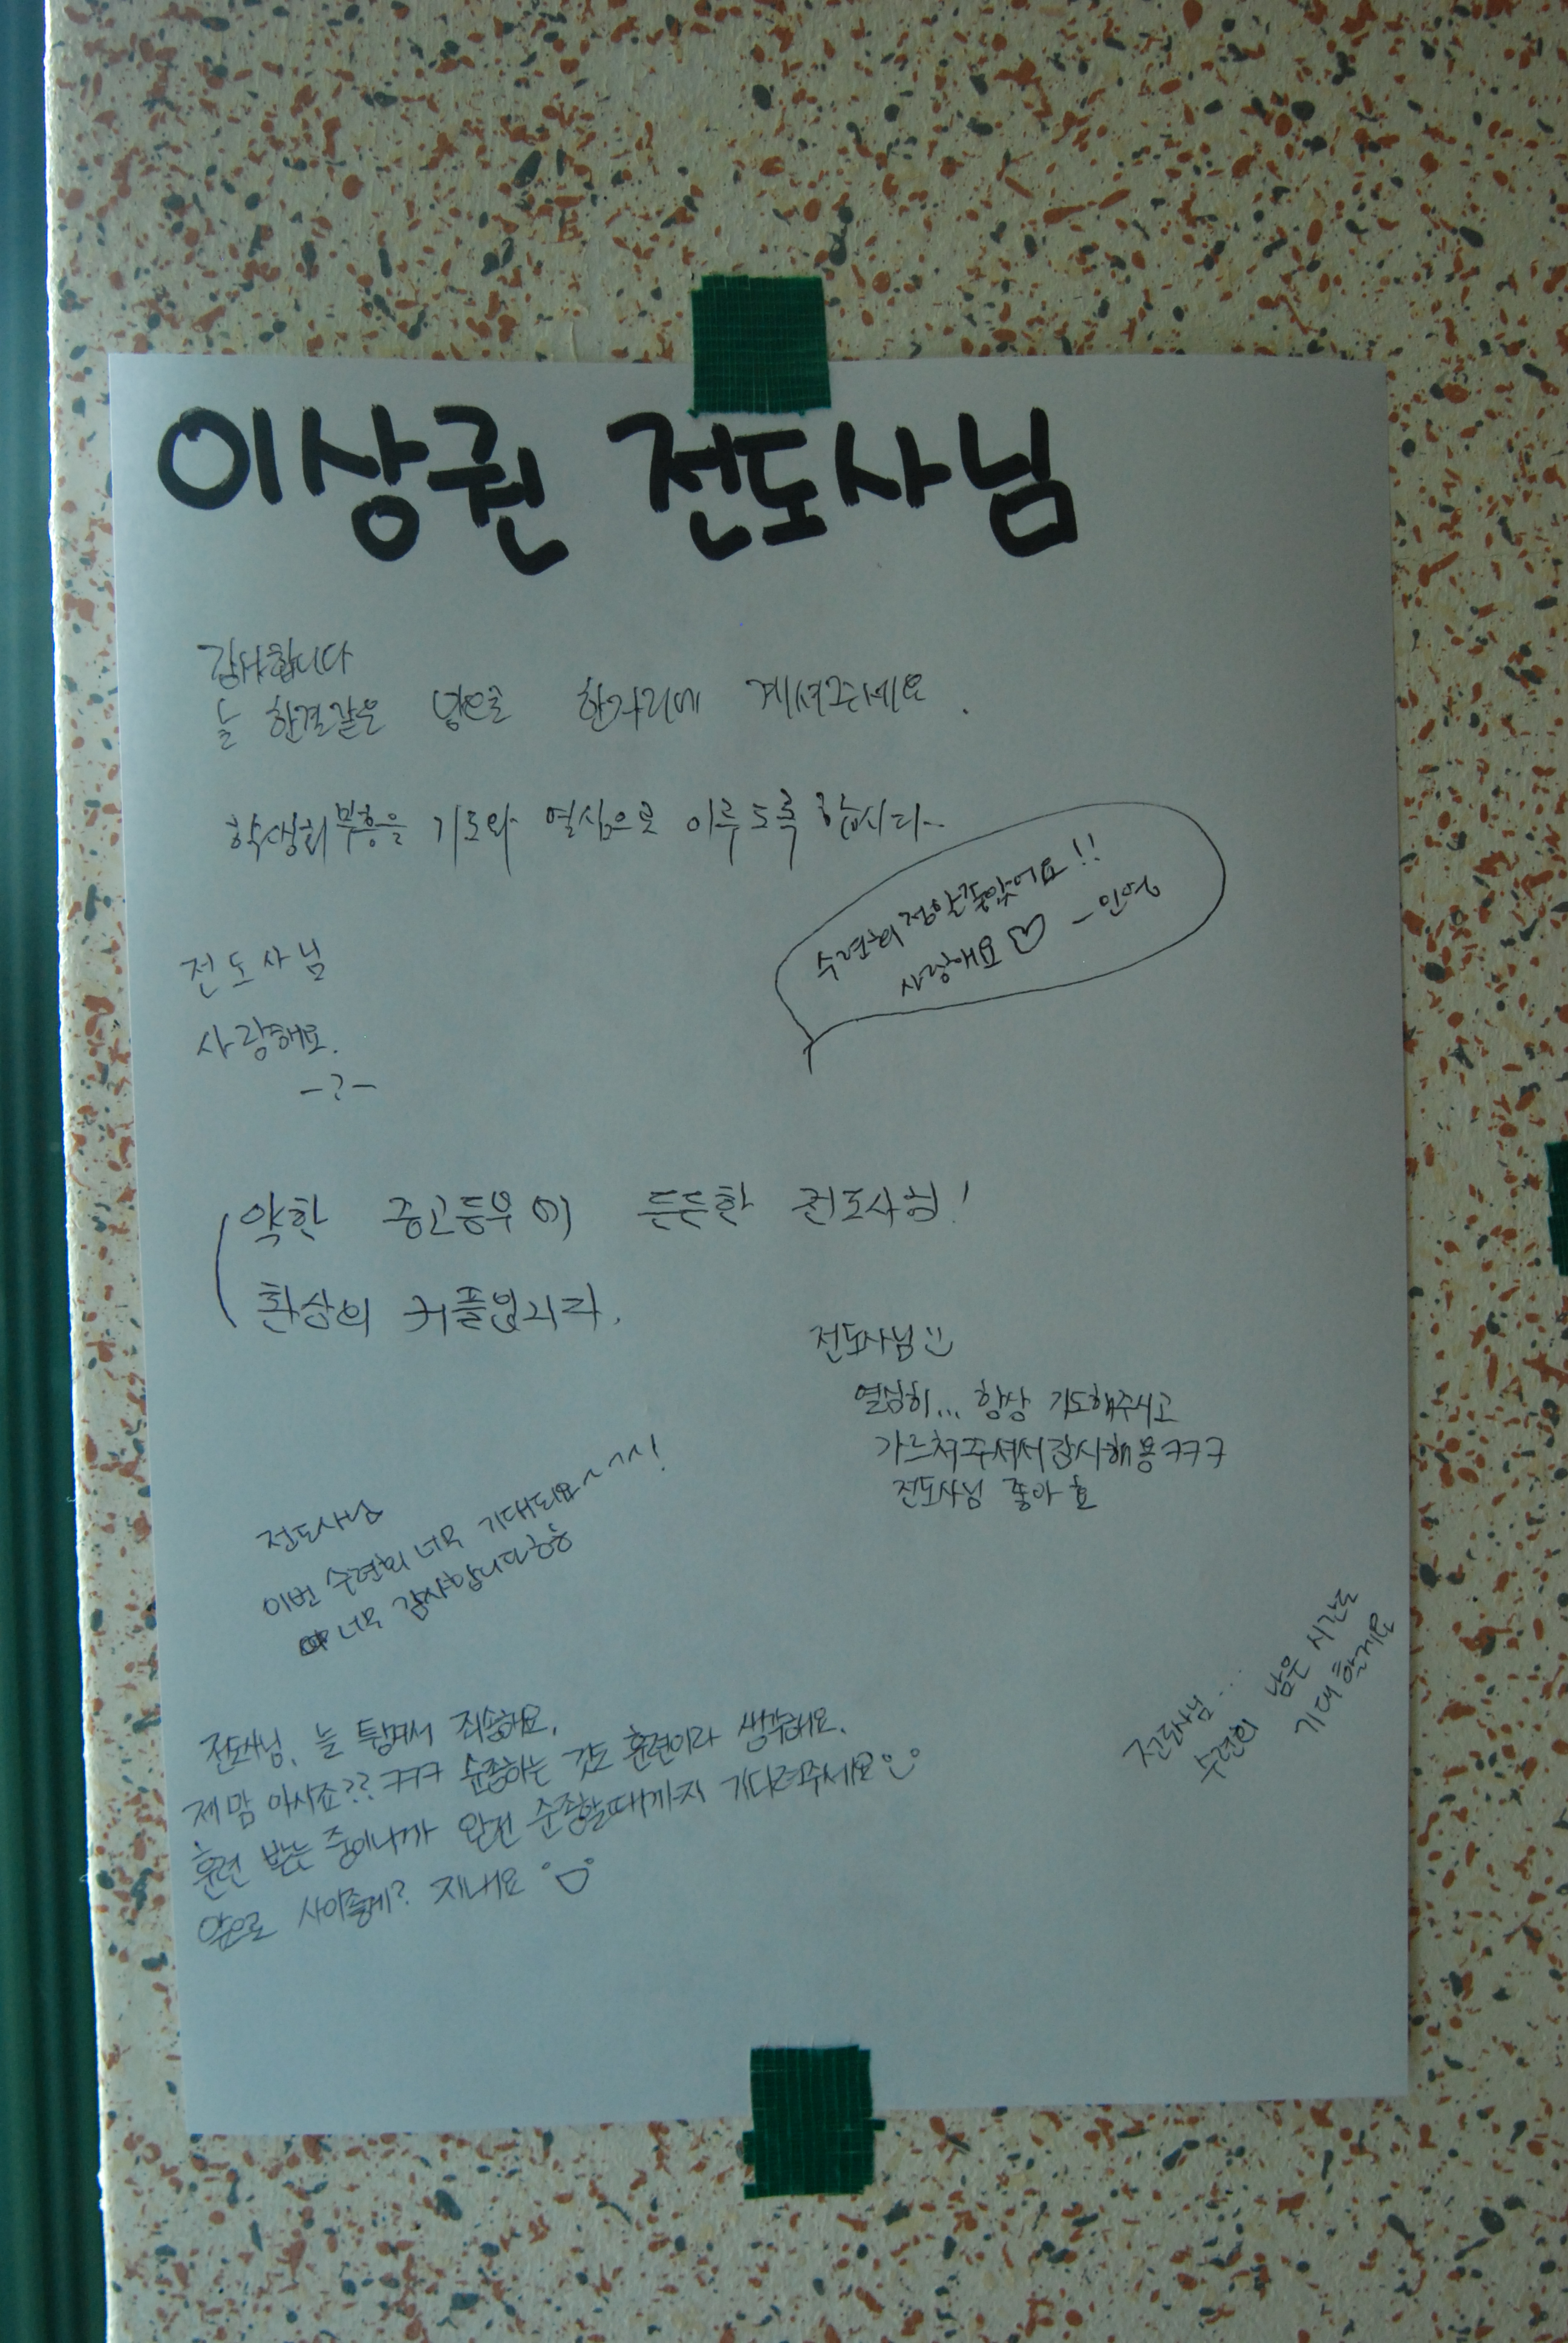 이상권 전도사님
감사합니다
늘 한결같은 맘으로 한자리에 계셔주세요.
학생회 부흥을 기도와 열심으로 이루도록 합시다~
수련회 정말 좋았어요!!
사랑해요 ♡ -
전도사님
사랑해요.
-?-
약한 중고등부에 든든한 전도사님!
환상의 커플입니다.
전도사님 :)
열심히... 항상 기도해주시고
가르쳐주셔서 감사해용ㅋㅋㅋ
전도사님 좋아효
전도사님
이번 수련회 너무 기대되요~~~!
너무 감사합니다ㅎㅎ
전도사님...
수련회 남은 시간도
기대할게요
전도사님, 늘 죄송해요.
제 맘 아시죠?? ㅋㅋㅋ 순종하는 것도 훈련이라 생각해요.
훈련 받는 중이니까 완전 순종할때까지 기다려주세요 :)
앞으로 사이좋게? 지내요 :D